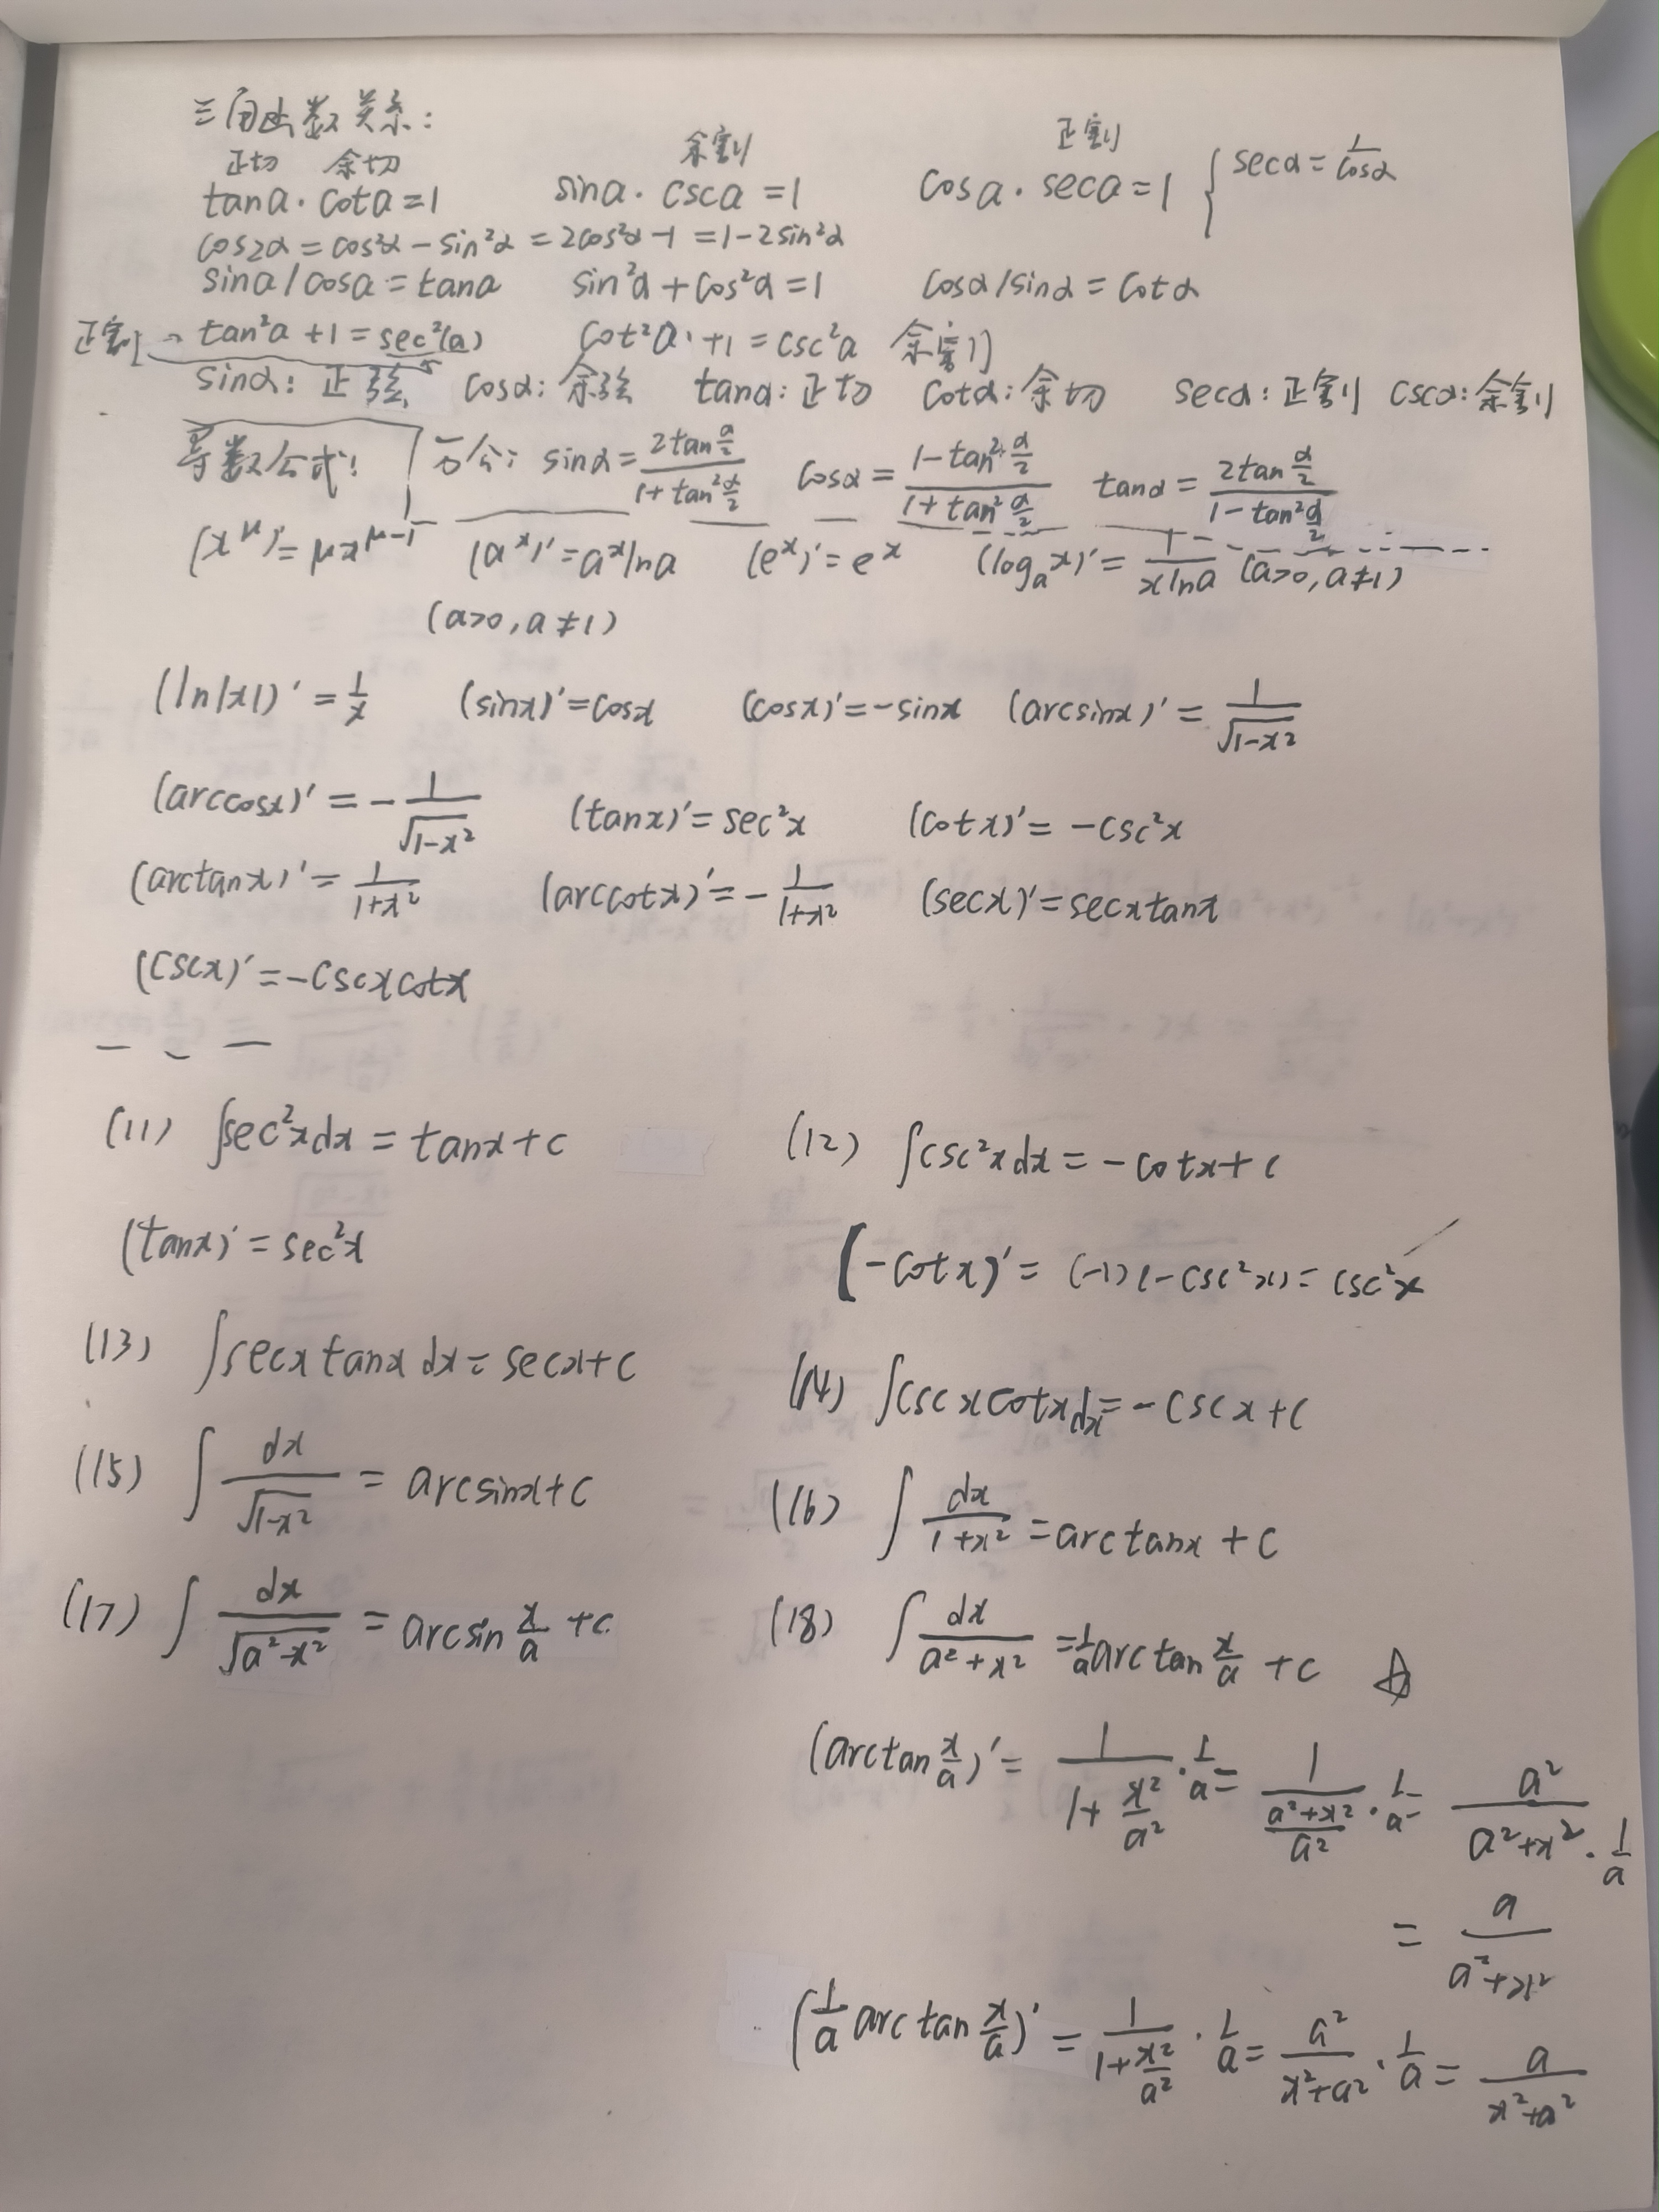 三角函数关系:
正切 余切 余割 正割
tana·cota=1 sina·csca=1 cosa·seca=1 { secα=1/cosα
cos2α=cos²α-sin²α=2cos²α-1=1-2sin²α
sina/cosa=tana sin²α+cos²α=1 cosα/sinα=cotα
正割 tan²a+1=sec²(a) cot²a+1=csc²a 余割
sinα:正弦 cosα:余弦 tanα:正切 cotα:余切 secα:正割 cscα:余割
导数公式! 万公: sinα=2tan(α/2)/(1+tan²(α/2)) cosα=(1-tan²(α/2))/(1+tan²(α/2)) tanα=2tan(α/2)/(1-tan²(α/2))
(x^μ)'=μx^(μ-1) (a^x)'=a^x lna (e^x)'=e^x (log_a x)'=1/(xlna) (a>0,a≠1)
(a>0,a≠1)
(ln|x|)'=1/x (sinx)'=cosx (cosx)'=-sinx (arcsinx)'=1/√(1-x²)
(arccosx)'=-1/√(1-x²) (tanx)'=sec²x (cotx)'=-csc²x
(arctanx)'=1/(1+x²) (arccotx)'=-1/(1+x²) (secx)'=secxtanx
(cscx)'=-cscxcotx
(11) ∫sec²xdx=tanx+c (12) ∫csc²xdx=-cotx+c
(tanx)'=sec²x (-cotx)'=(-1)(-csc²x)=csc²x
(13) ∫secxtanxdx=secx+c (14) ∫cscxcotxdx=-cscx+c
(15) ∫dx/√(1-x²)=arcsinx+c (16) ∫dx/(1+x²)=arctanx+c
(17) ∫dx/√(a²-x²)=arcsin x/a+c (18) ∫dx/(a²+x²)=1/a arctan x/a+c ☆
(arctan x/a)'=1/(1+x²/a²)·1/a=1/((a²+x²)/a²)·1/a=a²/(a²+x²)·1/a
=a/(a²+x²)
(1/a arctan x/a)'=1/(1+x²/a²)·1/a=a²/(x²+a²)·1/a=a/(x²+a²)